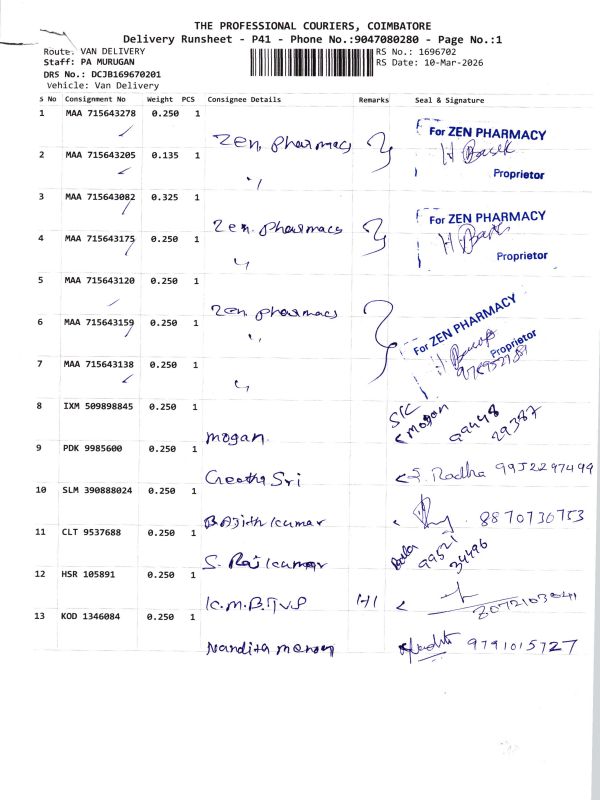 THE PROFESSIONAL COURIERS, COIMBATORE
Delivery Runsheet - P41 - Phone No.:9047080280 - Page No.:1
Route: VAN DELIVERY
RS No.: 1696702
Staff: PA MURUGAN
RS Date: 10-Mar-2026
DRS No.: DCJB169670201
Vehicle: Van Delivery
S No Consignment No Weight PCS Consignee Details Remarks Seal & Signature
1 MAA 715643278 0.250 1 Zen pharmacs For ZEN PHARMACY
Proprietor
2 MAA 715643205 0.135 1 "
3 MAA 715643082 0.325 1 Zen pharmacs For ZEN PHARMACY
Proprietor
4 MAA 715643175 0.250 1 "
5 MAA 715643120 0.250 1 Zen pharmacs For ZEN PHARMACY
Proprietor
6 MAA 715643159 0.250 1 "
7 MAA 715643138 0.250 1 "
8 IXM 509898845 0.250 1 mogan Mogan 99448
29387
9 PDK 9985600 0.250 1 Geetha Sri S. Radha
10 SLM 390888024 0.250 1 B Ajith kumar 8870730753
11 CLT 9537688 0.250 1 S. Raj kumar Bala 99521
34496
12 HSR 105891 0.250 1
13 KOD 1346084 0.250 1 Nandita 9791015727